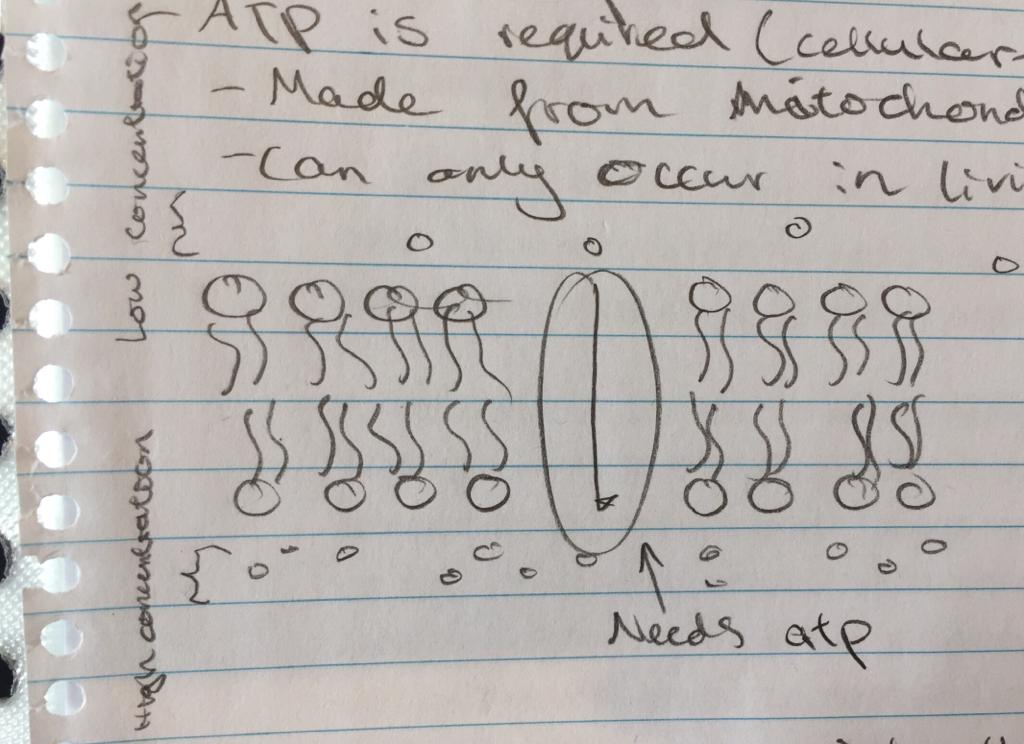 ATP is required (cellular-
- Made from Mitochond
- Can only occur in livi
Low concentration
High concentration
Needs atp